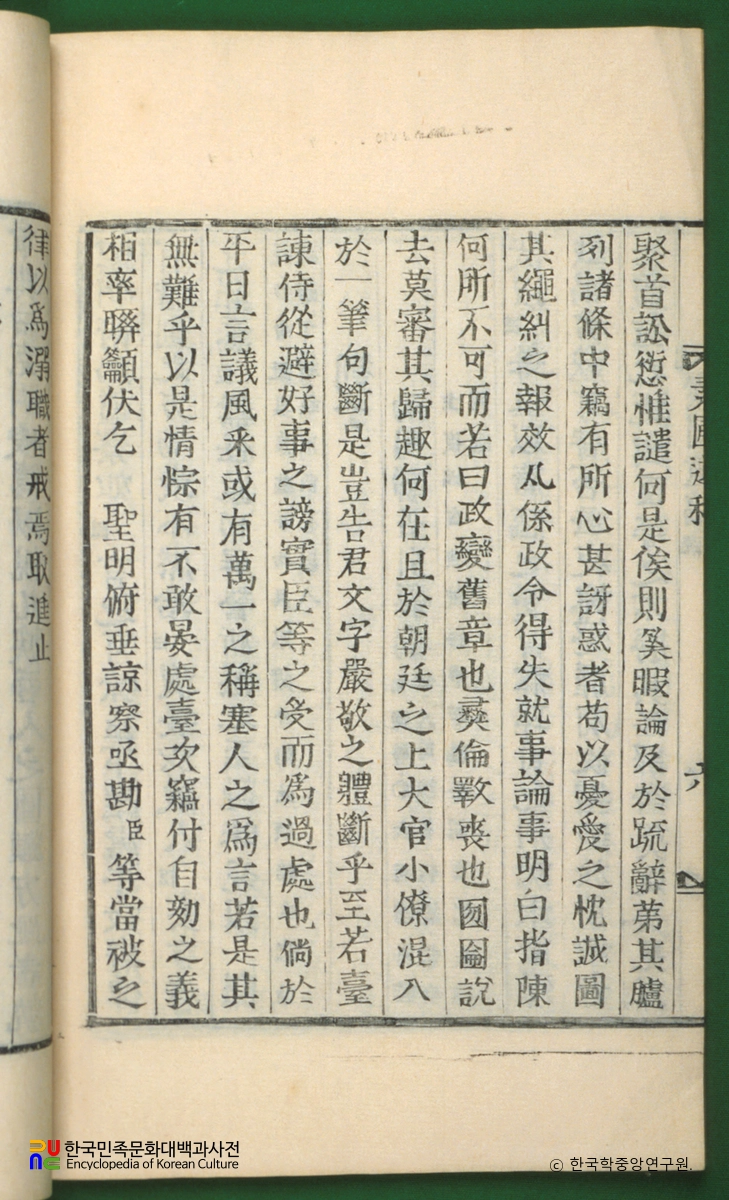 聚首訟愆惟譴何是俟則奚暇論及於疏辭第其臚
列諸條中竊有所心甚訝惑者苟以憂愛之忱誠圖
其繩糾之報效凡係政令得失就事論事明白指陳
何所不可而若曰政變舊章也彛倫斁喪也囫圇說
去莫審其歸趣何在且於朝廷之上大官小僚混入
於一筆句斷是豈告君文字嚴敬之體斷乎至若臺
諫侍從避好事之謗實臣等之受而爲過處也倘於
平日言議風采或有萬一之稱塞人之爲言若是其
無難乎以是情悰有不敢晏處臺次竊付自劾之義
相率聯籲伏乞 聖明俯垂諒察亟勘臣等當被之
律以爲溺職者戒焉取進止
六
한국민족문화대백과사전
Encyclopedia of Korean Culture
© 한국학중앙연구원.